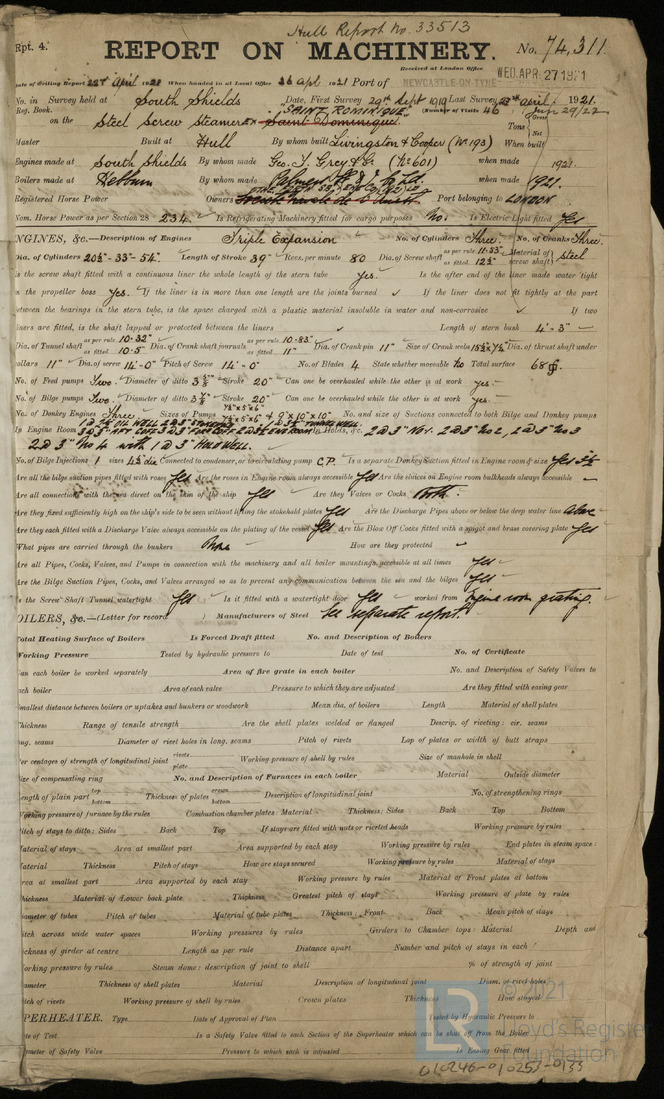 Hull Report No. 33513
Rpt. 4.
REPORT ON MACHINERY.
No. 74,311
Received at London Office
WED. APR. 27 1921
Date of writing Report 22nd April 1921 When handed in at Local Office 26 apl 1921 Port of NEWCASTLE-ON-TYNE
No. in Survey held at South Shields Date, First Survey 29th Sept 1919 Last Survey 22nd April 1921
Reg. Book. "SAINT ROMINIQUE" (Number of Visits 46
on the Steel Screw Steamer Saint Dominique Tons Gross Net
Master Built at Hull By whom built Livingston & Cooper (No 193) When built
Engines made at South Shields By whom made Geo. T. Grey & Co (No 601) when made 1921.
Boilers made at Hebburn By whom made Palmers when made 1921.
Registered Horse Power Owners Port belonging to LONDON
Nom. Horse Power as per Section 28 234 Is Refrigerating Machinery fitted for cargo purposes No. Is Electric Light fitted Yes
ENGINES, &c.—Description of Engines Triple Expansion No. of Cylinders Three No. of Cranks Three.
Dia. of Cylinders 20½-33-54" Length of Stroke 39" Revs. per minute 80 Dia. of Screw shaft as per rule 11.53" as fitted 12⅜" Material of screw shaft steel
Is the screw shaft fitted with a continuous liner the whole length of the stern tube Yes. Is the after end of the liner made water tight
in the propeller boss Yes. If the liner is in more than one length are the joints burned If the liner does not fit tightly at the part
between the bearings in the stern tube, is the space charged with a plastic material insoluble in water and non-corrosive If two
liners are fitted, is the shaft lapped or protected between the liners Length of stern bush 4'-3"
Dia. of Tunnel shaft as per rule 10.32" as fitted 10.5 Dia. of Crank shaft journals as per rule 10.83" as fitted 11" Dia. of Crank pin 11" Size of Crank webs Dia. of thrust shaft under
collars 11" Dia. of screw 14'-0" Pitch of Screw 14'-0" No. of Blades 4 State whether moveable No Total surface 68 ft.
No. of Feed pumps Two. Diameter of ditto Stroke 20" Can one be overhauled while the other is at work yes
No. of Bilge pumps Two. Diameter of ditto Stroke 20" Can one be overhauled while the other is at work yes
No. of Donkey Engines Three Sizes of Pumps & 9"x10"x10" No. and size of Suctions connected to both Bilge and Donkey pumps
In Engine Room In Holds, &c. 2 @ 3" No 1. 2 @ 3" No 2, 2 @ 3" No 3
2 @ 3" No 4 with 1 @ 3" HOLD WELL.
No. of Bilge Injections 1 sizes 4½ dia Connected to condenser, or to circulating pump C.P. Is a separate Donkey Suction fitted in Engine room & size Yes 3½
Are all the bilge suction pipes fitted with roses Yes Are the roses in Engine room always accessible Yes Are the sluices on Engine room bulkheads always accessible
Are all connections with the sea direct on the skin of the ship Yes Are they Valves or Cocks Both.
Are they fixed sufficiently high on the ship's side to be seen without lifting the stokehold plates Yes Are the Discharge Pipes above or below the deep water line above
Are they each fitted with a Discharge Valve always accessible on the plating of the vessel Yes Are the Blow Off Cocks fitted with a spigot and brass covering plate Yes
What pipes are carried through the bunkers None How are they protected
Are all Pipes, Cocks, Valves, and Pumps in connection with the machinery and all boiler mountings accessible at all times Yes
Are the Bilge Suction Pipes, Cocks, and Valves arranged so as to prevent any communication between the sea and the bilges Yes
Is the Screw Shaft Tunnel watertight Yes Is it fitted with a watertight door Yes worked from Engine room grating.
BOILERS, &c.—(Letter for record Manufacturers of Steel See separate report.
Total Heating Surface of Boilers Is Forced Draft fitted No. and Description of Boilers
Working Pressure Tested by hydraulic pressure to Date of test No. of Certificate
Can each boiler be worked separately Area of fire grate in each boiler No. and Description of Safety Valves to
each boiler Area of each valve Pressure to which they are adjusted Are they fitted with easing gear
Smallest distance between boilers or uptakes and bunkers or woodwork Mean dia. of boilers Length Material of shell plates
Thickness Range of tensile strength Are the shell plates welded or flanged Descrip. of riveting: cir. seams
long. seams Diameter of rivet holes in long. seams Pitch of rivets Lap of plates or width of butt straps
Per centages of strength of longitudinal joint rivets plate Working pressure of shell by rules Size of manhole in shell
Size of compensating ring No. and Description of Furnaces in each boiler Material Outside diameter
Length of plain part top bottom Thickness of plates crown bottom Description of longitudinal joint No. of strengthening rings
Working pressure of furnace by the rules Combustion chamber plates: Material Thickness: Sides Back Top Bottom
Pitch of stays to ditto: Sides Back Top If stays are fitted with nuts or riveted heads Working pressure by rules
Material of stays Area at smallest part Area supported by each stay Working pressure by rules End plates in steam space:
Material Thickness Pitch of stays How are stays secured Working pressure by rules Material of stays
Area at smallest part Area supported by each stay Working pressure by rules Material of Front plates at bottom
Thickness Material of Lower back plate Thickness Greatest pitch of stays Working pressure of plate by rules
Diameter of tubes Pitch of tubes Material of tube plates Thickness: Front Back Mean pitch of stays
Pitch across wide water spaces Working pressures by rules Girders to Chamber tops: Material Depth and
thickness of girder at centre Length as per rule Distance apart Number and pitch of stays in each
Working pressure by rules Steam dome: description of joint to shell % of strength of joint
Diameter Thickness of shell plates Material Description of longitudinal joint Diam. of rivet holes
Pitch of rivets Working pressure of shell by rules Crown plates Thickness How stayed
SUPERHEATER. Type Date of Approval of Plan Tested by Hydraulic Pressure to
Date of Test Is a Safety Valve fitted to each Section of the Superheater which can be shut off from the Boiler
Diameter of Safety Valve Pressure to which each is adjusted Is Easing Gear fitted
© 2021
Lloyd's Register
Foundation
010246-010253-0133